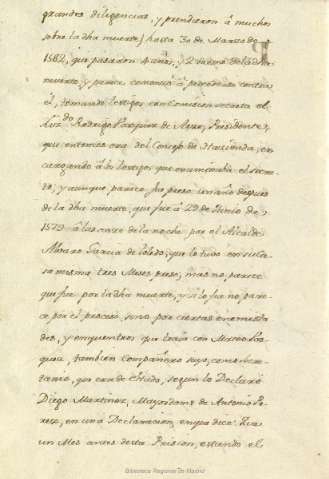 grandes diligencias, y prendieron à muchos
sobre la dha muerte) hasta 30 de Marzo de
1582, que pasaron 4 años, y 2 de la
muerte, y parece comenzó à proceder contra
él, tomando testigos con Comision secreta el
Rodrigo Vazquez de Arze, Presidente,
que entonces era del Consejo de Hacienda, en-
cargando à los testigos que
to, y aunque parece fue preso un año despues
de la dha muerte, que fue à 29 de Junio de
1579 à las once de la noche por el Alcalde
Alvaro Garcia de Toledo, que lo tuvo en su Ca-
sa misma tres Meses preso; mas no parece
que fue por la dha muerte, y si lo fue no pare-
ce por el proceso, sino por ciertas enemista-
des, y enquentros que traia con Matheo Vaz-
quez, tambien Compañero suyo, como Secre-
tario, que era de Estado, segun lo Declaró
Diego Martinez, Mayordomo de Antonio Pe-
rez, en una Declaracion, en que dice: Que
un Mes antes de esta Prision, estando el
Biblioteca Regional de Madrid